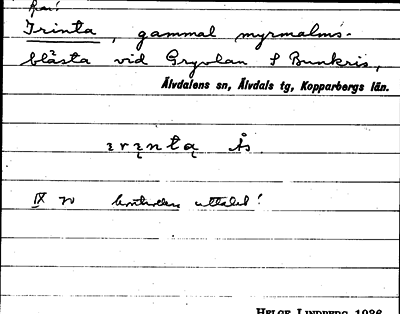 Irinta, gammal myrmalms-
blåsta vid Gryvlan S Bunkris,
Älvdalens sn, Älvdals tg, Kopparbergs län.
ɪrįntą Ås
IX 20 kontrollera uttalet!
HELGE LINDBERG 1926